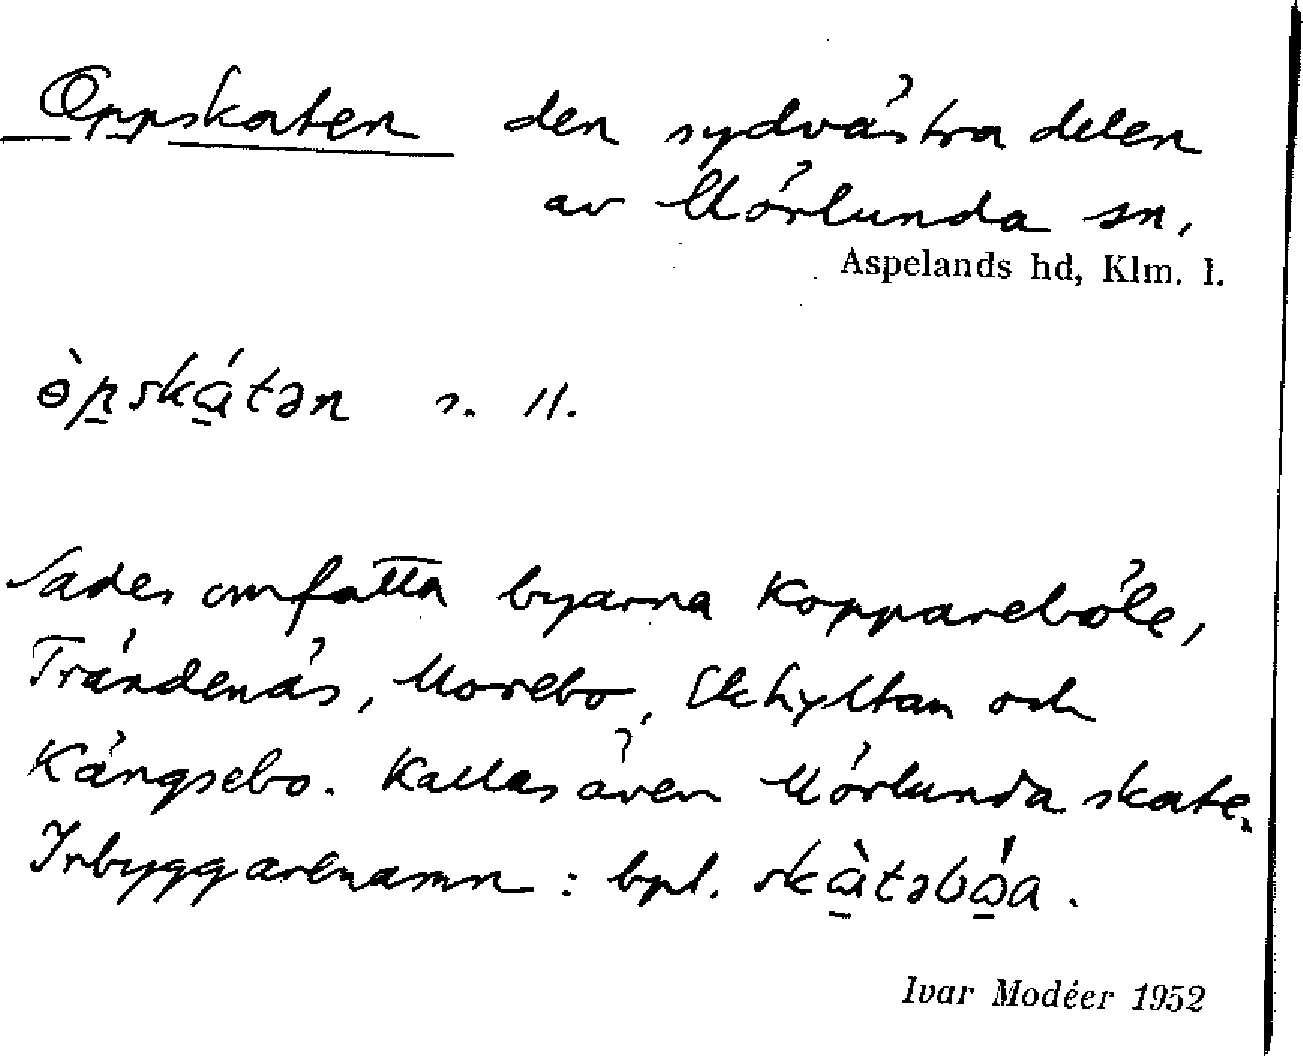 Oppskaten den sydvästra delen
av Mörlunda sn.
Aspelands hd, Klm. l.
ɵ̀p̱skа̱́tən s. 11.
Sades omfatta byarna Koppareböle,
Trändenäs, Morebo, Ekhyltan och
Kängsebo. Kallas även Mörlunda skate.
Inbyggarenamn: bpl. skà̱təbó̱a.
Ivar Modéer 1952